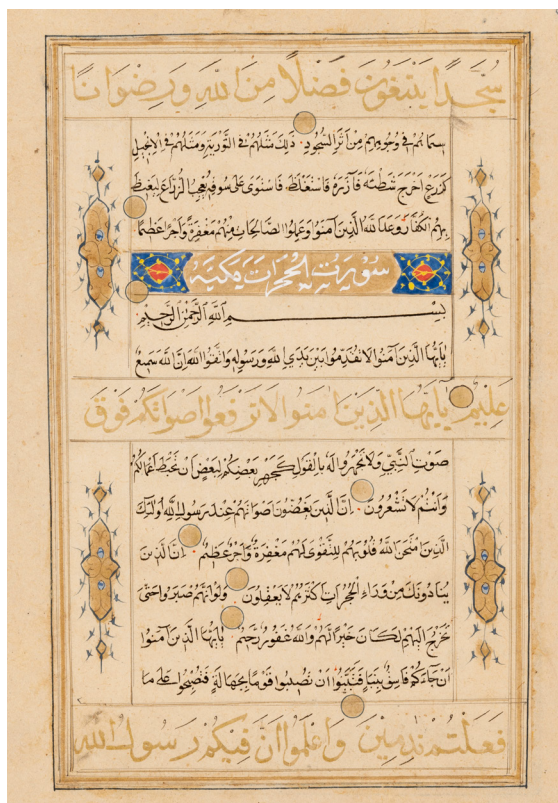 سُجَّدًا يَبْتَغُونَ فَضْلًا مِنَ اللَّهِ وَرِضْوَانًا
سِيمَاهُمْ فِي وُجُوهِهِمْ مِنْ أَثَرِ السُّجُودِ ذَلِكَ مَثَلُهُمْ فِي التَّوْرَيةِ وَمَثَلُهُمْ فِي الْإِنْجِيلِ
كَزَرْعٍ أَخْرَجَ شَطْئَهُ فَآزَرَهُ فَاسْتَغْلَظَ فَاسْتَوَى عَلَى سُوقِهِ يُعْجِبُ الزُّرَّاعَ لِيَغِيظَ
بِهِمُ الْكُفَّارَ وَعَدَ اللَّهُ الَّذِينَ آمَنُوا وَعَمِلُوا الصَّالِحَاتِ مِنْهُمْ مَغْفِرَةً وَأَجْرًا عَظِيمًا
سورت الحجرات مكية
بِسْمِ اللَّهِ الرَّحْمَنِ الرَّحِيمِ
يَا أَيُّهَا الَّذِينَ آمَنُوا لَا تُقَدِّمُوا بَيْنَ يَدَيِ اللَّهِ وَرَسُولِهِ وَاتَّقُوا اللَّهَ إِنَّ اللَّهَ سَمِيعٌ
عَلِيمٌ يَا أَيُّهَا الَّذِينَ آمَنُوا لَا تَرْفَعُوا أَصْوَاتَكُمْ فَوْقَ
صَوْتِ النَّبِيِّ وَلَا تَجْهَرُوا لَهُ بِالْقَوْلِ كَجَهْرِ بَعْضِكُمْ لِبَعْضٍ أَنْ تَحْبَطَ أَعْمَالُكُمْ
وَأَنْتُمْ لَا تَشْعُرُونَ إِنَّ الَّذِينَ يَغُضُّونَ أَصْوَاتَهُمْ عِنْدَ رَسُولِ اللَّهِ أُولَئِكَ
الَّذِينَ امْتَحَنَ اللَّهُ قُلُوبَهُمْ لِلتَّقْوَى لَهُمْ مَغْفِرَةٌ وَأَجْرٌ عَظِيمٌ إِنَّ الَّذِينَ
يُنَادُونَكَ مِنْ وَرَاءِ الْحُجُرَاتِ أَكْثَرُهُمْ لَا يَعْقِلُونَ وَلَوْ أَنَّهُمْ صَبَرُوا حَتَّى
تَخْرُجَ إِلَيْهِمْ لَكَانَ خَيْرًا لَهُمْ وَاللَّهُ غَفُورٌ رَحِيمٌ يَا أَيُّهَا الَّذِينَ آمَنُوا
إِنْ جَاءَكُمْ فَاسِقٌ بِنَبَإٍ فَتَبَيَّنُوا أَنْ تُصِيبُوا قَوْمًا بِجَهَالَةٍ فَتُصْبِحُوا عَلَى مَا
فَعَلْتُمْ نَادِمِينَ وَاعْلَمُوا أَنَّ فِيكُمْ رَسُولَ اللَّهِ